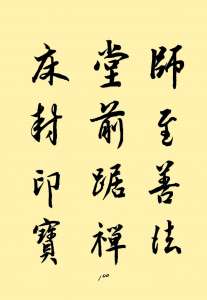 師至善法
堂前踞禪
床封印寶